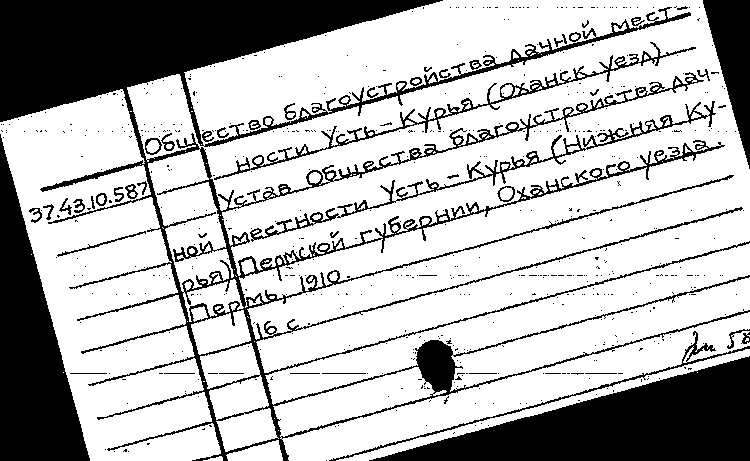 Общество благоустройства дачной мест-
ности Усть-Курья (Оханск. уезд).
37.43.10.587
Устав Общества благоустройства дач-
ной местности Усть-Курья (Нижняя Ку-
рья) Пермской губернии, Оханского уезда.
Пермь, 1910.
16 с.
58